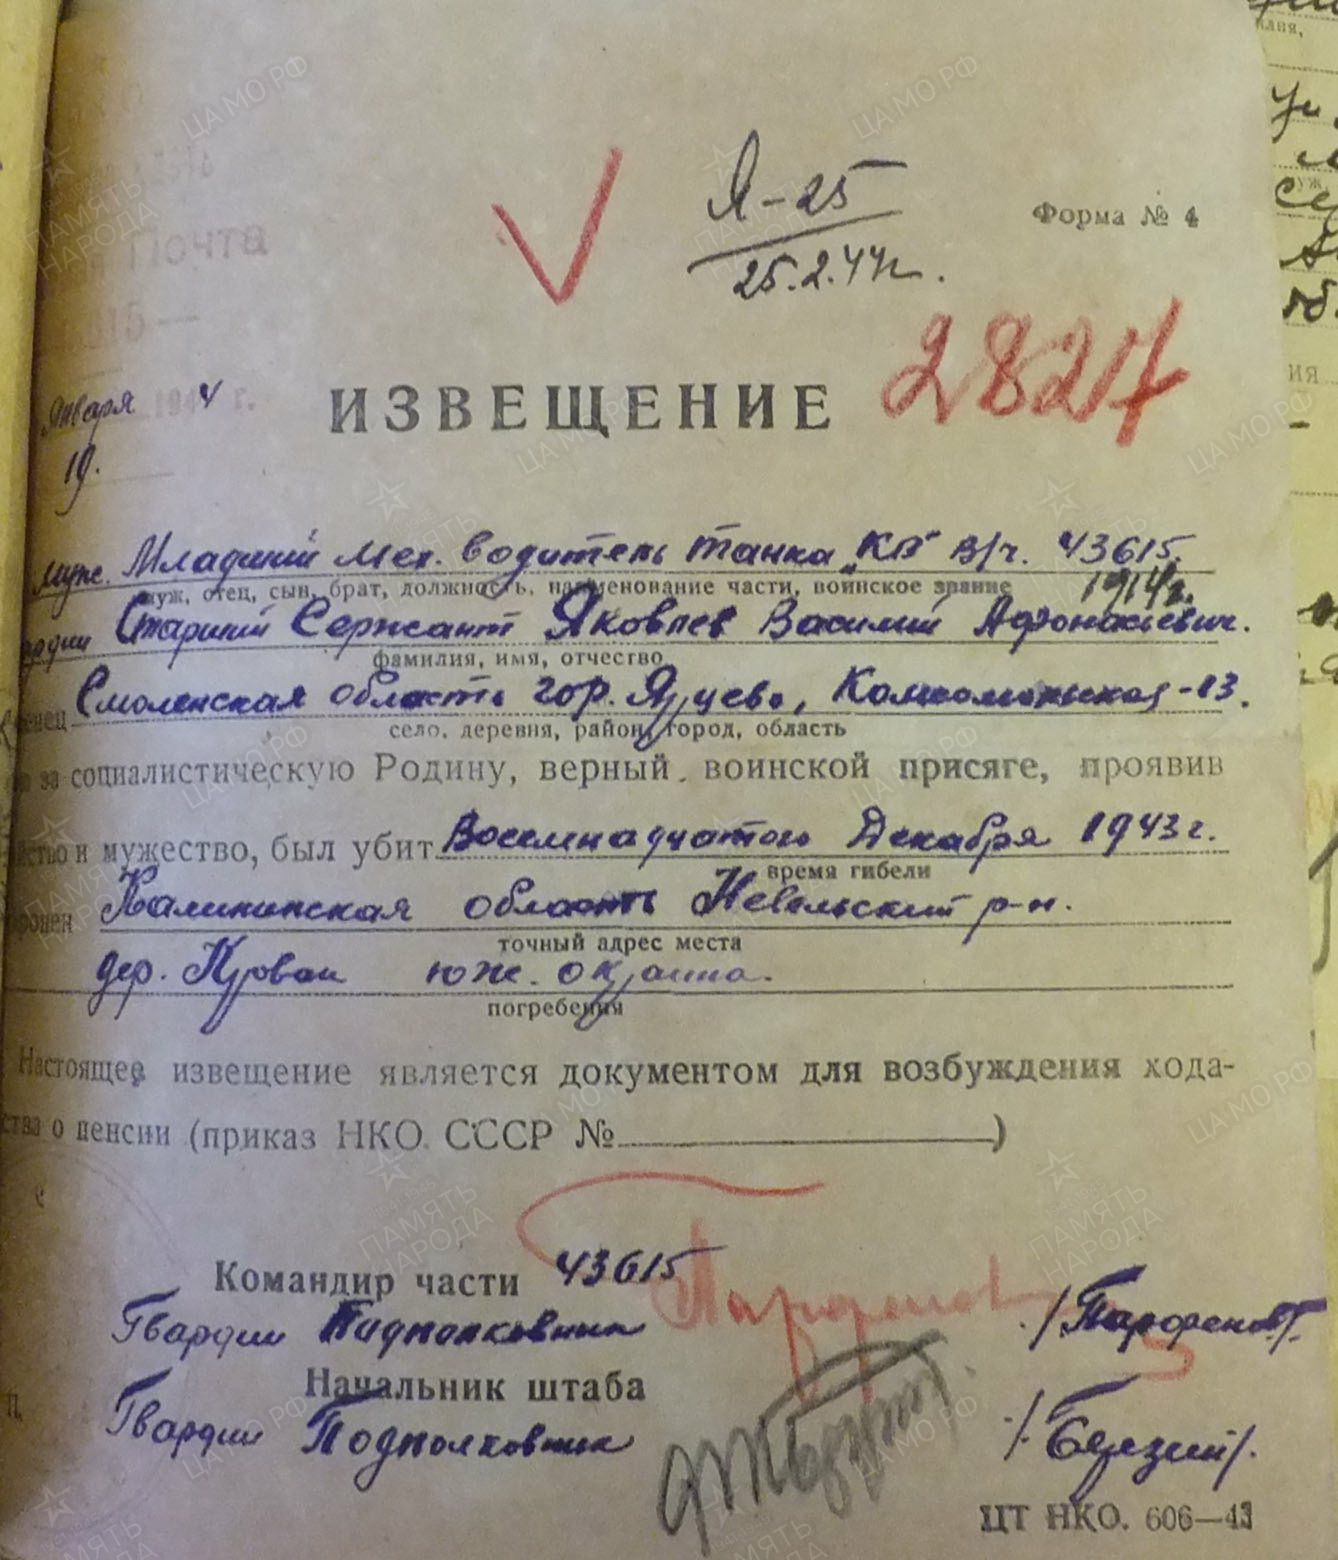 Я-25
25.2.44г.
Форма № 4
Почта
января 1944 г.
ИЗВЕЩЕНИЕ
2827
19.
муж. Младший мех. водитель танка „КВ" в/ч. 43615.
муж, отец, сын, брат, должность, наименование части, воинское звание
1914г.
Старший Сержант Яковлев Василий Афонасьевич.
фамилия, имя, отчество
Смоленская область гор. Ярцево, Комсомольская-13.
село, деревня, район, город, область
за социалистическую Родину, верный воинской присяге, проявив
и мужество, был убит Восемнадцатого Декабря 1943г.
время гибели
Калининская область Невельский р-н.
точный адрес места
дер. Кр, юж. окраина.
погребения
Настоящее извещение является документом для возбуждения хода-
ства о пенсии (приказ НКО СССР №)
Командир части 43615
Гвардии Подполковник /Парфенов/.
Начальник штаба
Гвардии Подполковник /Березин/.
ЦТ НКО. 606—43
ПАМЯТЬ НАРОДА
ЦАМО РФ